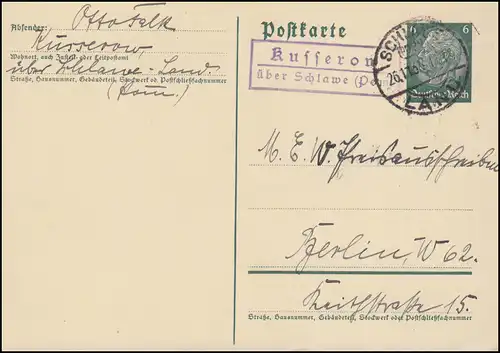 Absender: Otto Falk
Kusserow
Wohnort, auch Zustell- oder Leitpostamt
über Schlawe-Land
Straße, Hausnummer, Gebäudeteil, Stockwerk od. Postschließfachnummer
(Pom.)
Postkarte
6 6
Deutsches Reich
26.
LAND
Kusserow
über Schlawe (Pom
M. E. W. Preisausschreiben
Berlin, W 62.
Keithstraße 15.
Straße, Hausnummer, Gebäudeteil, Stockwerk oder Postschließfachnummer